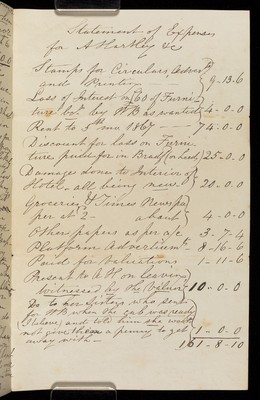 Statement of Expenses
for A Hartley &c
Stamps for Circulars Adverts
and Printing — } 9-13-6
Loss of Interest in £60 of Furni-
ture bot by WB as wanted } 4-0-0
Rent to 5th mo 1867 — — 74-0-0
Discount for Loss on Furni-
ture puld for in Bradford } 25-0-0
Damages done to Interior of
Hotel all being new } 20-0-0
Groceries & Times Newspr
per st 2 — about } 4-0-0
Other papers as per a/c 3-7-4
Platform Advertismt - 8-16-6
Paid for Valuations 1-11-6
Present to A H on leaving
witnessed by the Valuer } 10-0-0
Do to her Sisters who sent
for WB when the cab was ready
(I believe) and told him she would
not give them a penny to get
away with — } 1-0-0
161-8-10